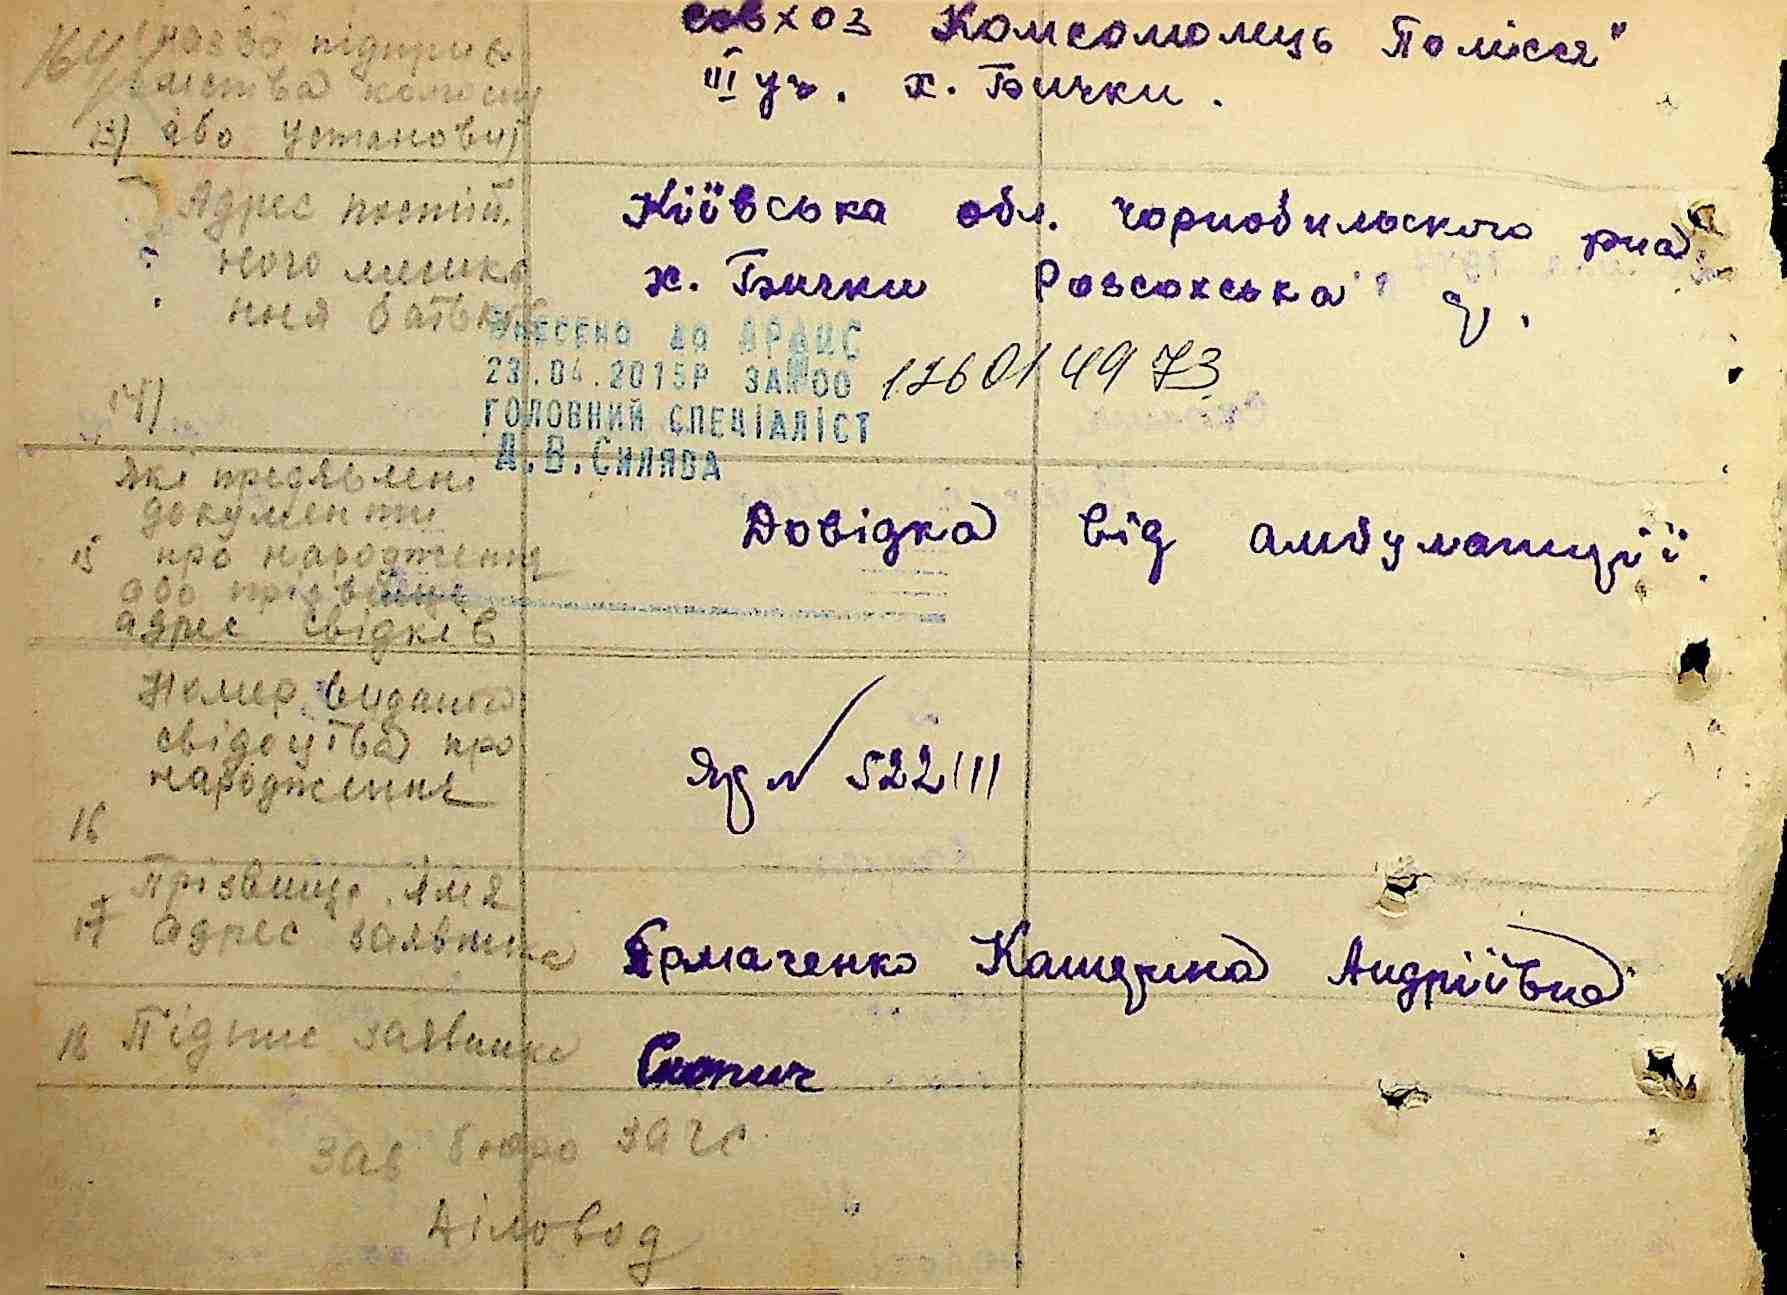 совхоз Комсомолець Полісся"
(назва підприє
мства колгоспу
III уч. х. Бички.
13) або установи)
Адрес постій
ного мешка
ння батьків
Київська обл. Чорнобильского рна
х. Бички Розсохська
ВНЕСЕНО ДО ДРАЦС
23.04.2015Р ЗА №00 12601 4973
ГОЛОВНИЙ СПЕЦІАЛІСТ
А.В.СИЛЯВА
14)
які предявлені
документи
15 про народження
або прізвище
адрес свідків
Довідка від амбулаторії.
Номер виданого
свідоцтва про
народження
16
№ 522111
Прізвище, імя
17 адрес заявника
Ярмаченко Катерина Андріївна
18 Підпис заявника
Скопич
Зав бюро ЗАГС
Діловод